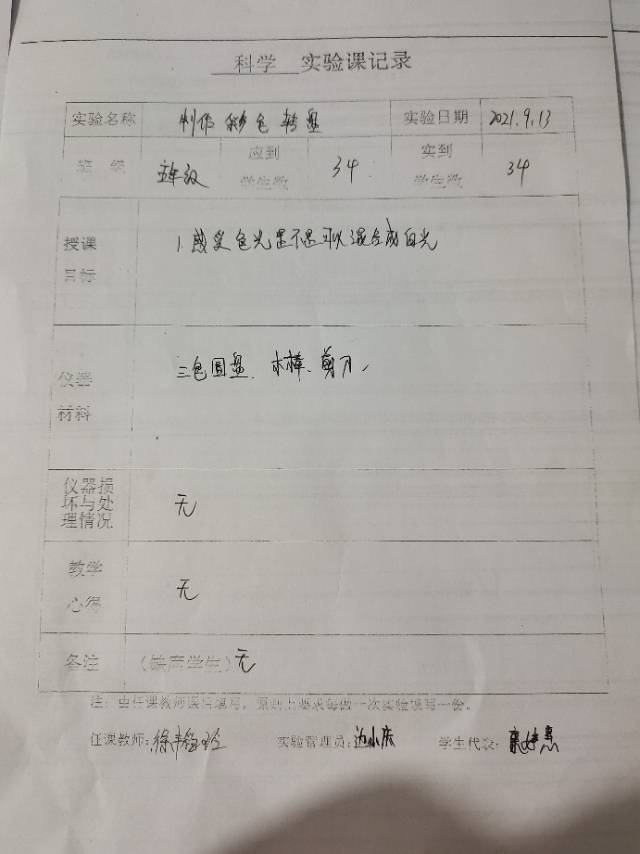 科学 实验课记录
实验名称 制作彩色转盘 实验日期 2021.9.13
班 级 五年级 应到学生数 34 实到学生数 34
授课目标 1.感受色光是不是可以混合成白光
仪器材料 三色圆盘、木棒、剪刀、
仪器损坏与处理情况 无
教学心得 无
备注 (缺席学生)无
注:由任课教师课后填写,原则上要求每做一次实验填写一份。
任课教师: 实验管理员: 学生代表: